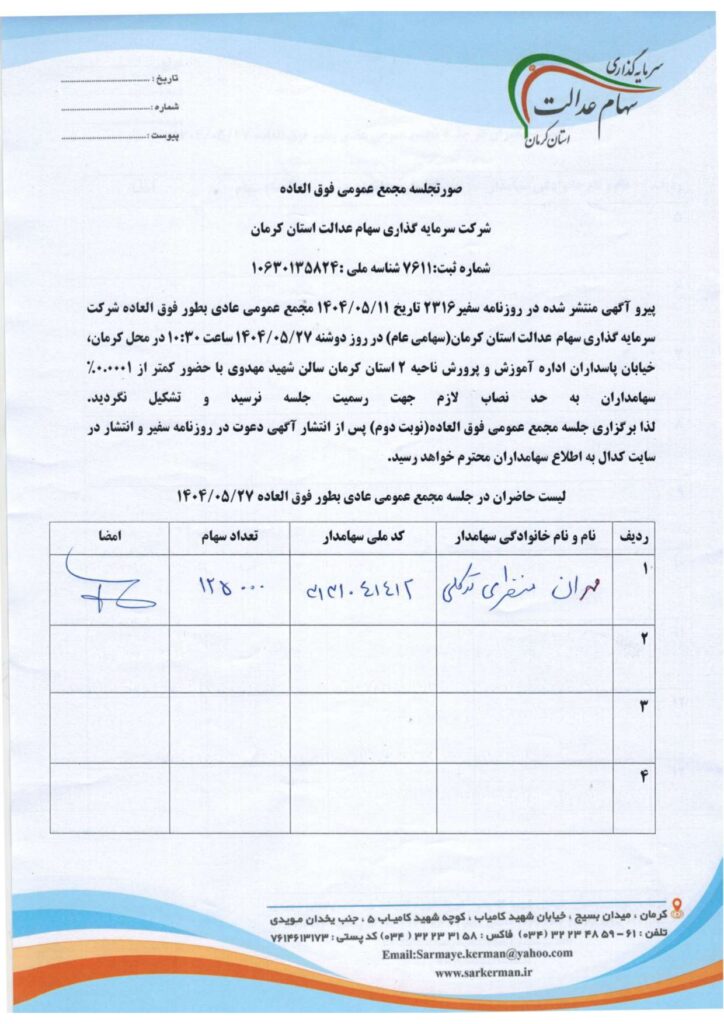 سرمایه گذاری
سهام عدالت
استان کرمان
تاریخ :
شماره :
پیوست :
صورتجلسه مجمع عمومی فوق العاده
شرکت سرمایه گذاری سهام عدالت استان کرمان
شماره ثبت:۷۶۱۱ شناسه ملی :۱۰۶۳۰۱۳۵۸۲۴
پیرو آگهی منتشر شده در روزنامه سفیر۲۳۱۶ تاریخ ۱۴۰۴/۰۵/۱۱ مجمع عمومی عادی بطور فوق العاده شرکت
سرمایه گذاری سهام عدالت استان کرمان(سهامی عام) در روز دوشنبه ۱۴۰۴/۰۵/۲۷ ساعت ۱۰:۳۰ در محل کرمان،
خیابان پاسداران اداره آموزش و پرورش ناحیه ۲ استان کرمان سالن شهید مهدوی با حضور کمتر از ۰.۰۰۰۱%
سهامداران به حد نصاب لازم جهت رسمیت جلسه نرسید و تشکیل نگردید.
لذا برگزاری جلسه مجمع عمومی فوق العاده(نوبت دوم) پس از انتشار آگهی دعوت در روزنامه سفیر و انتشار در
سایت کدال به اطلاع سهامداران محترم خواهد رسید.
لیست حاضران در جلسه مجمع عمومی عادی بطور فوق العاده ۱۴۰۴/۰۵/۲۷
ردیف نام و نام خانوادگی سهامدار کد ملی سهامدار تعداد سهام امضا
۱ مهران ۱۲۵۰۰۰
۲
۳
۴
کرمان ، میدان بسیج ، خیابان شهید کامیاب ، کوچه شهید کامیاب ۵ ، جنب یخدان مویدی
تلفن : ۶۱ – ۵۹ ۴۸ ۲۳ ۳۲ (۰۳۴) فاکس : ۵۸ ۳۱ ۲۳ ۳۲ (۰۳۴) کد پستی : ۷۶۱۴۶۱۳۱۷۳
Email:Sarmaye.kerman@yahoo.com
www.sarkerman.ir